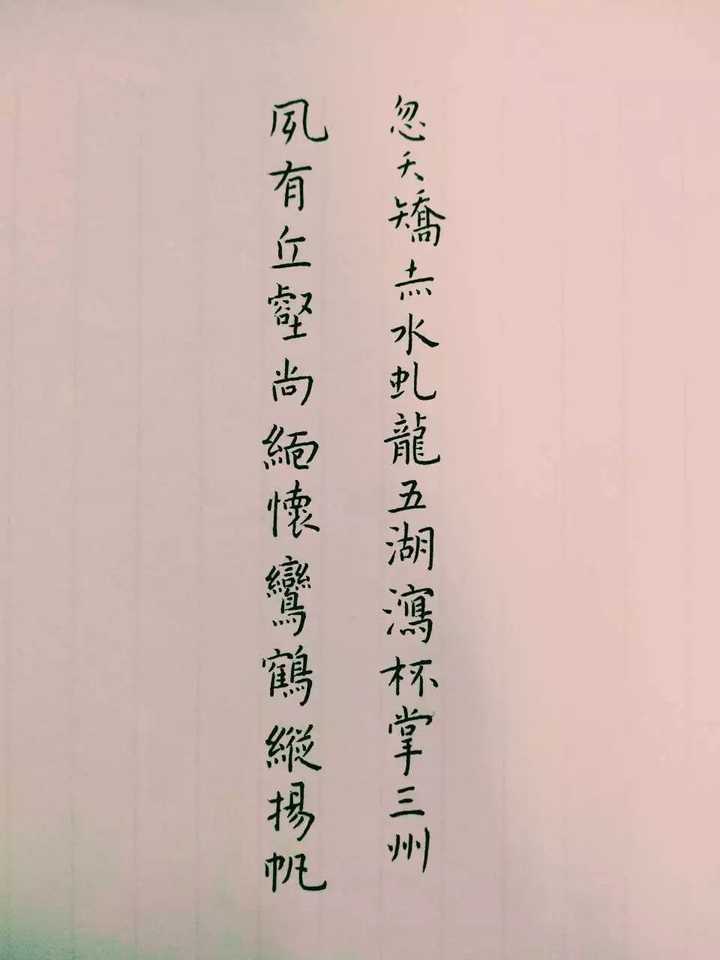 忽夭矯赤水虬龍五湖瀉杯掌三州
夙有丘壑尚緬懷鸞鶴縱揚帆